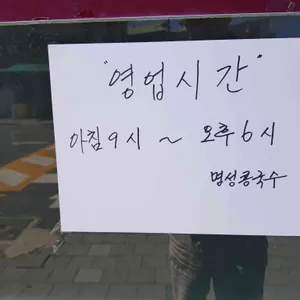 "영업시간"
아침 9시 ~ 오후 6시
명성콩국수